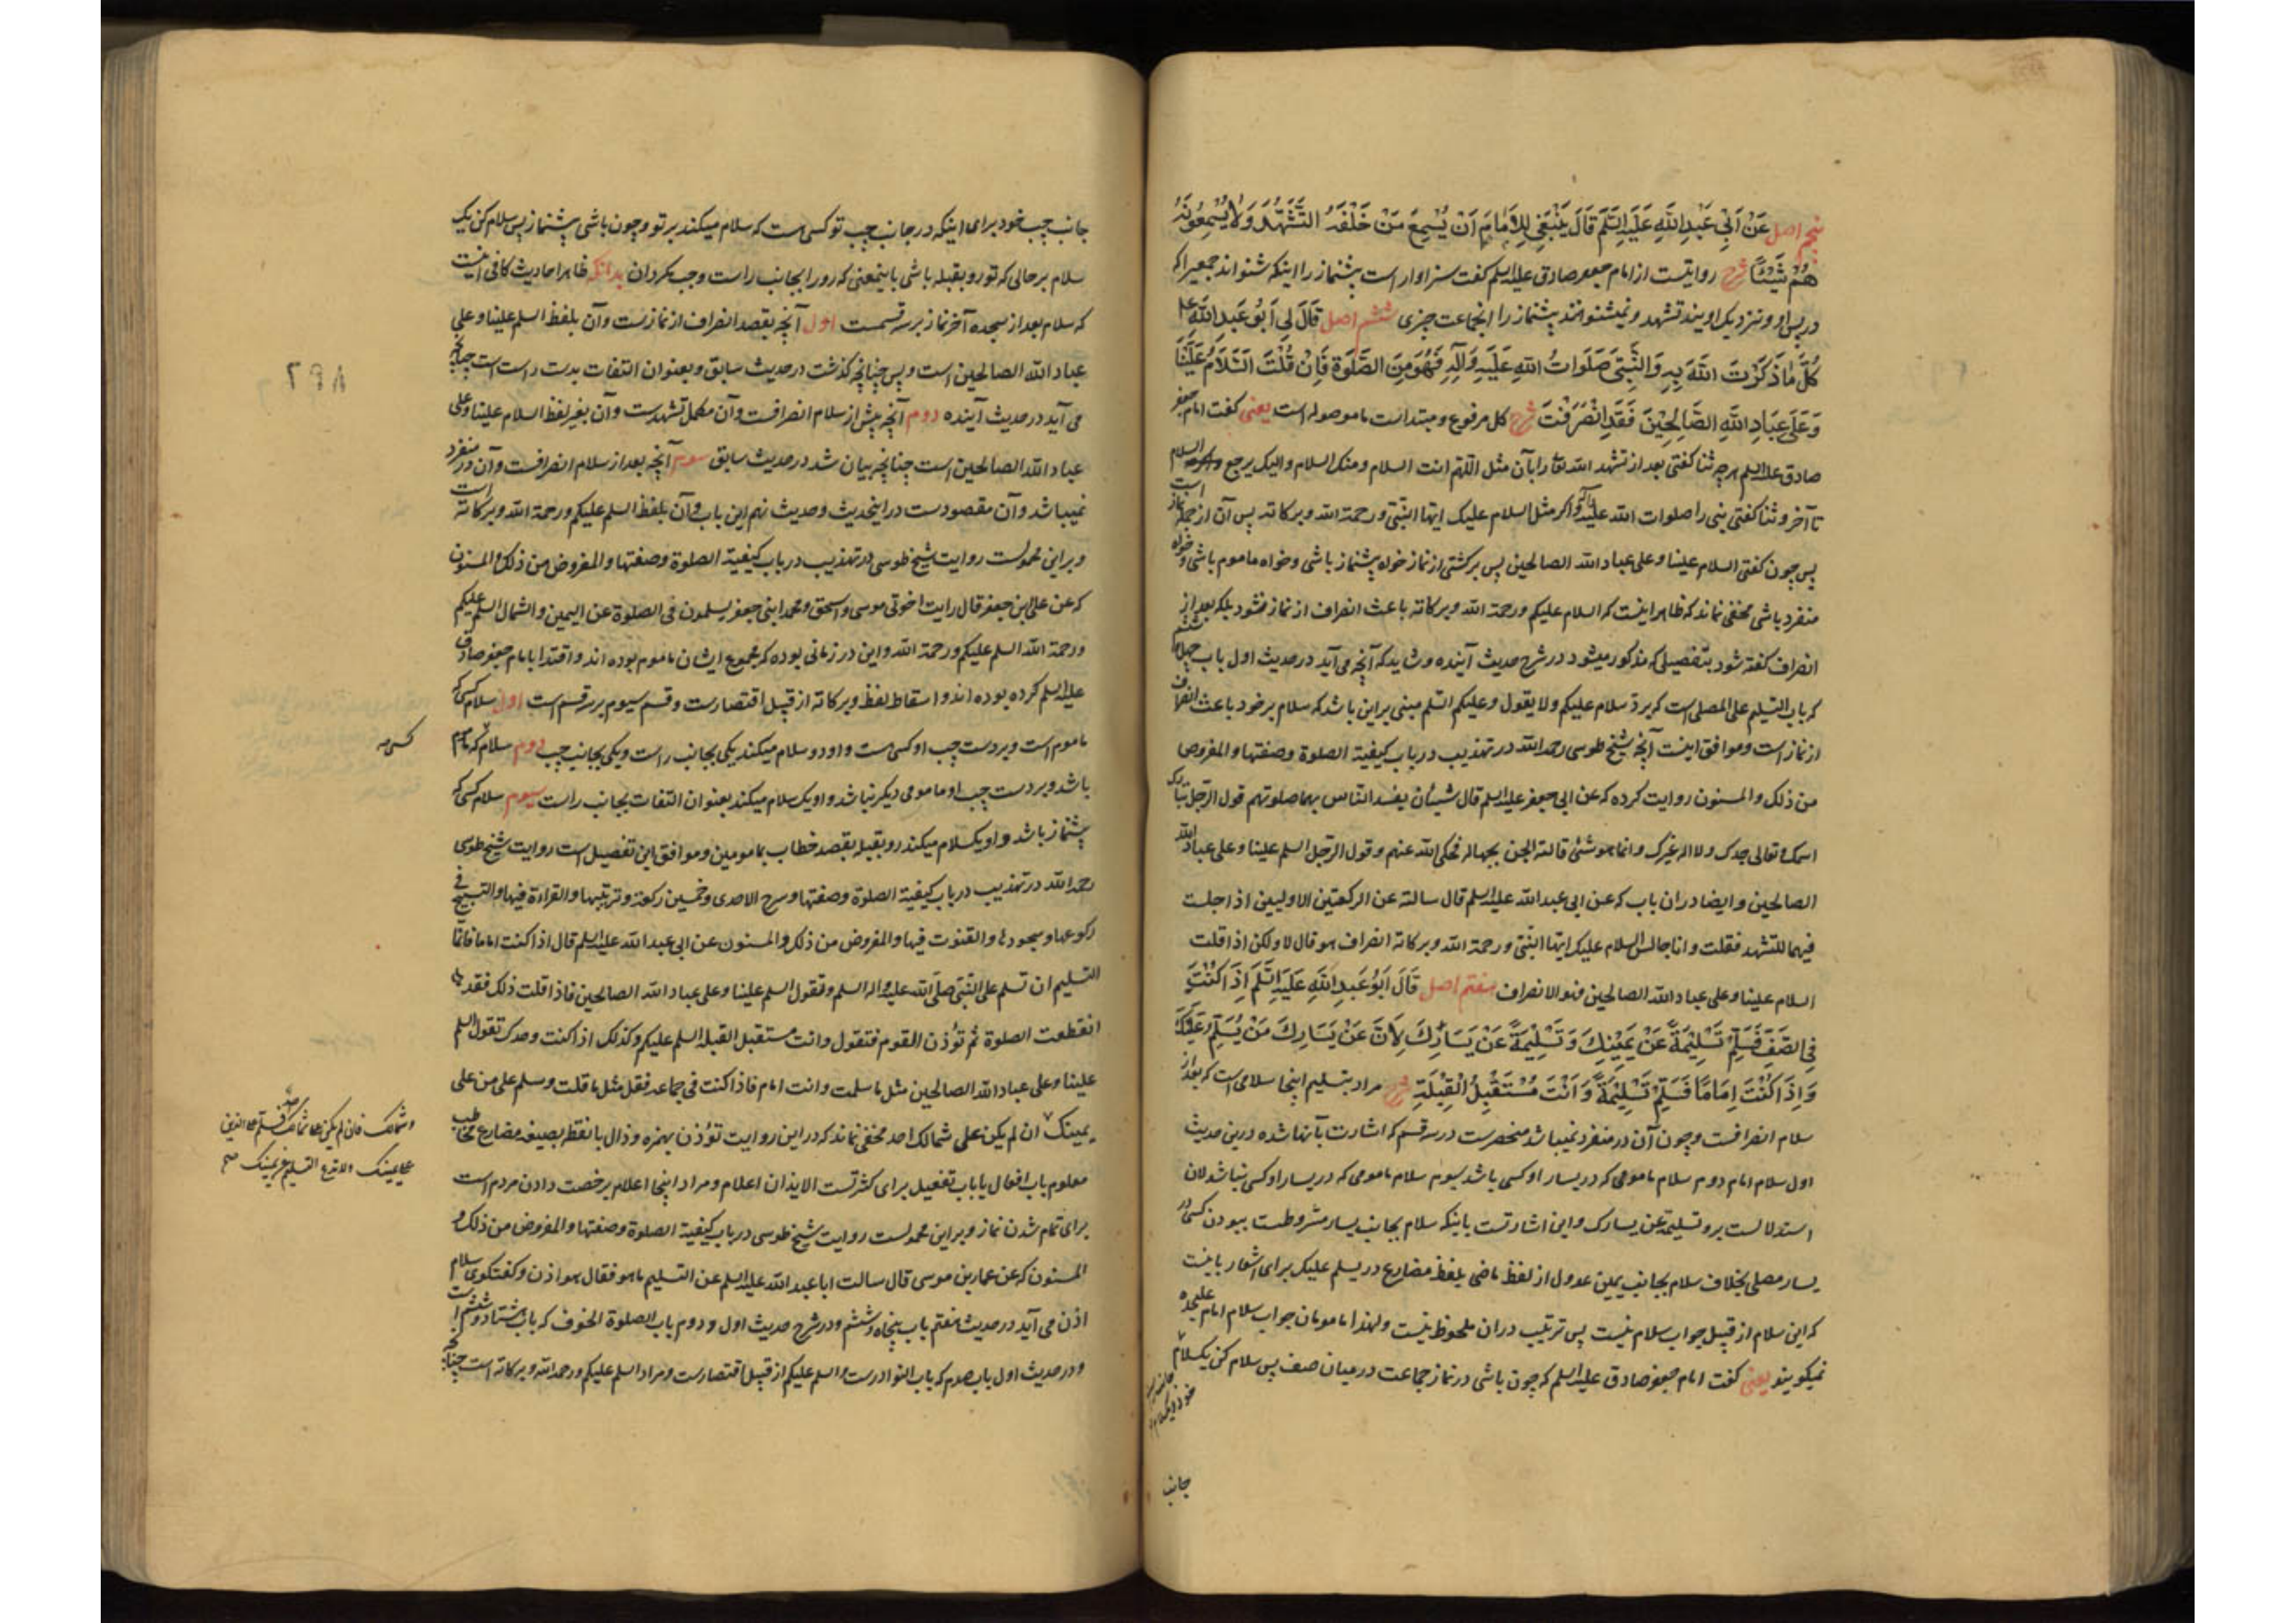 پنجم اصل عَنْ اَبِي عَبْدِ اللّهِ عَلَيْهِ السَّلَم قَالَ يَنْبَغِي لِلاِمَامِ اَنْ يُسْمِعَ مَنْ خَلْفَهُ التَّشَهُّدَ وَلَا يُسْمِعُونَهُ
هُمْ شَيْئًا شرح روایتست از امام جعفر صادق علیه السلم گفت سزاوار است پیشنماز را اینکه شنواند جمعی را که
در پس او و نزدیک اویند تشهد و نمیشنوانند پیشنماز را انجماعت چیزی ششم اصل قَالَ لِي اَبُو عَبْدِ اللّهِ ع
كُلُّ مَا ذَكَرْتَ اللّهَ بِهِ وَالنَّبِيَّ صَلَوَاتُ اللّهِ عَلَيْهِ وَآلِهِ فَهُوَ مِنَ الصَّلٰوةِ فَاِنْ قُلْتَ السَّلَامُ عَلَيْنَا
وَعَلَى عِبَادِ اللّهِ الصَّالِحِينَ فَقَدِ انْصَرَفْتَ شرح کل مرفوع و مبتداست ما موصوله است یعنی گفت امام جعفر
صادق علیه السلم هرچه ثنا گفتی بعد از تشهد الله تعا را بآن مثل اللّهم انت السلام ومنک السلام والیک یرجع السلام
تا آخر و ثنا گفتی نبی را صلوات الله علیه وآله مثل السلام علیک ایها النبی ورحمة الله وبرکاته پس آن از جمله نماز است
پس چون گفتی السلام علینا وعلی عباد الله الصالحین پس برگشتی از نماز خواه پیشنماز باشی وخواه ماموم باشی وخواه
منفرد باشی مخفی نماند که ظاهر اینست که السلام علیکم ورحمة الله وبرکاته باعث انصراف از نماز نشود بلکه بعد از
انصراف گفته شود بتفصیلی که مذکور میشود در شرح حدیث آینده و شاید که آنچه می آید در حدیث اول باب چهل و ششم
که باب التسلیم علی المصلی است که برد سلام علیکم ولا یقول وعلیکم السلم مبنی براین باشد که سلام بر خود باعث انصراف
از نماز است وموافق اینست آنچه شیخ طوسی رحمه الله در تهذیب در باب کیفیة الصلوة وصفتها والمفروض
من ذلک والمسنون روایت کرده که عن ابی جعفر علیه السلم قال شیئان یفسد الناس بهما صلوتهم قول الرجل تبارک
اسمک وتعالی جدک ولا اله غیرک وانما هو شئ قالته الجن بجهالة فحکی الله عنهم وقول الرجل السلم علینا وعلی عباد الله
الصالحین وایضا در ان باب که عن ابی عبد الله علیه السلم قال سالته عن الرکعتین الاولیین اذا جلست
فیهما للتشهد فقلت وانا جالس السلام علیک ایها النبی ورحمة الله وبرکاته انصراف هو قال لا ولکن اذا قلت
السلام علینا وعلی عباد الله الصالحین فهو الانصراف هفتم اصل قَالَ اَبُو عَبْدِ اللّهِ عَلَيْهِ السَّلَم اِذَا كُنْتَ
فِي الصَّفِّ فَسَلِّمْ تَسْلِيمَةً عَنْ يَمِينِكَ وَتَسْلِيمَةً عَنْ يَسَارِكَ لِاَنَّ عَنْ يَسَارِكَ مَنْ يُسَلِّمُ عَلَيْكَ
وَاِذَا كُنْتَ اِمَامًا فَسَلِّمْ تَسْلِيمَةً وَاَنْتَ مُسْتَقْبِلُ الْقِبْلَةِ شرح مراد بتسلیم اینجا سلامی است که بعد از
سلام انصرافست وچون آن در منفرد نمیباشد منحصرست در سه قسم که اشارت بآنها شده درین حدیث
اول سلام امام دوم سلام مامومی که در یسار او کسی باشد سیوم سلام مامومی که در یسار او کسی نباشد لان
استدلالست بر وتسلیمة عن یسارک واین اشارتست باینکه سلام بجانب یسار مشروطست ببودن کسی در
یسار مصلی بخلاف سلام بجانب یمین عدول از لفظ ماضی بلفظ مضارع در یسلم علیک برای اشعار باینست
که این سلام از قبیل جواب سلام نیست پس ترتیب دران ملحوظ نیست ولهذا مامومان جواب سلام امام علیحده
نمیگویند یعنی گفت امام جعفر صادق علیه السلم که چون باشی در نماز جماعت در میان صف پس سلام کن یکسلام
جانب
جانب چپ خود برای اینکه در جانب چپ تو کسی است که سلام میکند بر تو وچون باشی پیشنماز پس سلام کن یک
سلام بر حالی که تو رو بقبله باشی باینمعنی که رو را بجانب راست وچپ مگردان بدانکه ظاهر احادیث کافی اینست
که سلام بعد از سجده آخر نماز بر سه قسمست اول آنچه بقصد انصراف از نمازست وآن بلفظ السلم علینا وعلی
عباد الله الصالحین است وبس چنانچه گذشت در حدیث سابق وبعنوان التفات بدست راست است چنانچه
می آید در حدیث آینده دوم آنچه پیش از سلام انصرافست وآن مکمل تشهدست وآن بغیر لفظ السلام علینا وعلی
عباد الله الصالحین است چنانچه بیان شد در حدیث سابق سوم آنچه بعد از سلام انصرافست وآن در منفرد
نمیباشد وآن مقصودست در اینحدیث وحدیث نهم این باب وآن بلفظ السلم علیکم ورحمة الله وبرکاته است
وبر این محمولست روایت شیخ طوسی در تهذیب در باب کیفیة الصلوة وصفتها والمفروض من ذلک والمسنون
که عن علی بن جعفر قال رایت اخوتی موسی واسحق ومحمد ابنی جعفر یسلمون فی الصلوة عن الیمین والشمال السلم علیکم
ورحمة الله السلم علیکم ورحمة الله واین در زمانی بوده که مجموع ایشان ماموم بوده اند واقتدا بامام جعفر صادق
علیه السلم کرده بوده اند واسقاط لفظ وبرکاته از قبیل اقتصارست وقسم سیوم بر سه قسم است اول سلام کسی که
ماموم است وبر دست چپ او کسی ست واو دو سلام میکند یکی بجانب راست ویکی بجانب چپ دوم سلام که ماموم
کسی صه
باشد وبر دست چپ او مامومی دیگر نباشد واو یک سلام میکند بعنوان التفات بجانب راست سیوم سلام کسی که
پیشنماز باشد واو یکسلام میکند رو بقبله بقصد خطاب بمامومین وموافق این تفصیل است روایت شیخ طوسی
رحمه الله در تهذیب در باب کیفیة الصلوة وصفتها وشرح الاحدی وخمسین رکعة وترتیبها والقراءة فیها والتسبیح فی
رکوعها وسجودها والقنوت فیها والمفروض من ذلک والمسنون عن ابی عبد الله علیه السلم قال اذا کنت اماما فانما
التسلیم ان تسلم علی النبی صلی الله علیه واله السلم وتقول السلم علینا وعلی عباد الله الصالحین فاذا قلت ذلک فقد
انقطعت الصلوة ثم تؤذن القوم فتقول وانت مستقبل القبله السلم علیکم وکذلک اذا کنت وحدک تقول السلم
علینا وعلی عباد الله الصالحین مثل ما سلمت وانت امام فاذا کنت فی جماعة فقل مثل ما قلت وسلم علی من علی
یمینک ان لم یکن علی شمالک احد مخفی نماند که در این روایت تؤذن بهمزه وذال بانقطه بصیغه مضارع مخاطب
وشمالک فان لم یکن علی شمالک احد فسلم علی الذین
علی یمینک ولا تدع التسلیم عن یمینک صح
معلوم باب افعال یا باب تفعیل برای کثرتست الایذان اعلام ومراد اینجا اعلام برخصت دادن مردم است
برای تمام شدن نماز وبر این محمولست روایت شیخ طوسی در باب کیفیة الصلوة وصفتها والمفروض من ذلک و
المسنون که عن عمار بن موسی قال سالت ابا عبد الله علیه السلم عن التسلیم ما هو فقال هو اذن وگفتگوی سلام
اذن می آید در حدیث هفتم باب پنجاه وششم ودر شرح حدیث اول و دوم باب الصلوة الخوف که باب هشتاد وششم است
ودر حدیث اول باب صدم که باب النوادرست والسلم علیکم از قبیل اقتصارست ومراد السلم علیکم ورحمة الله وبرکاته است چنانچه